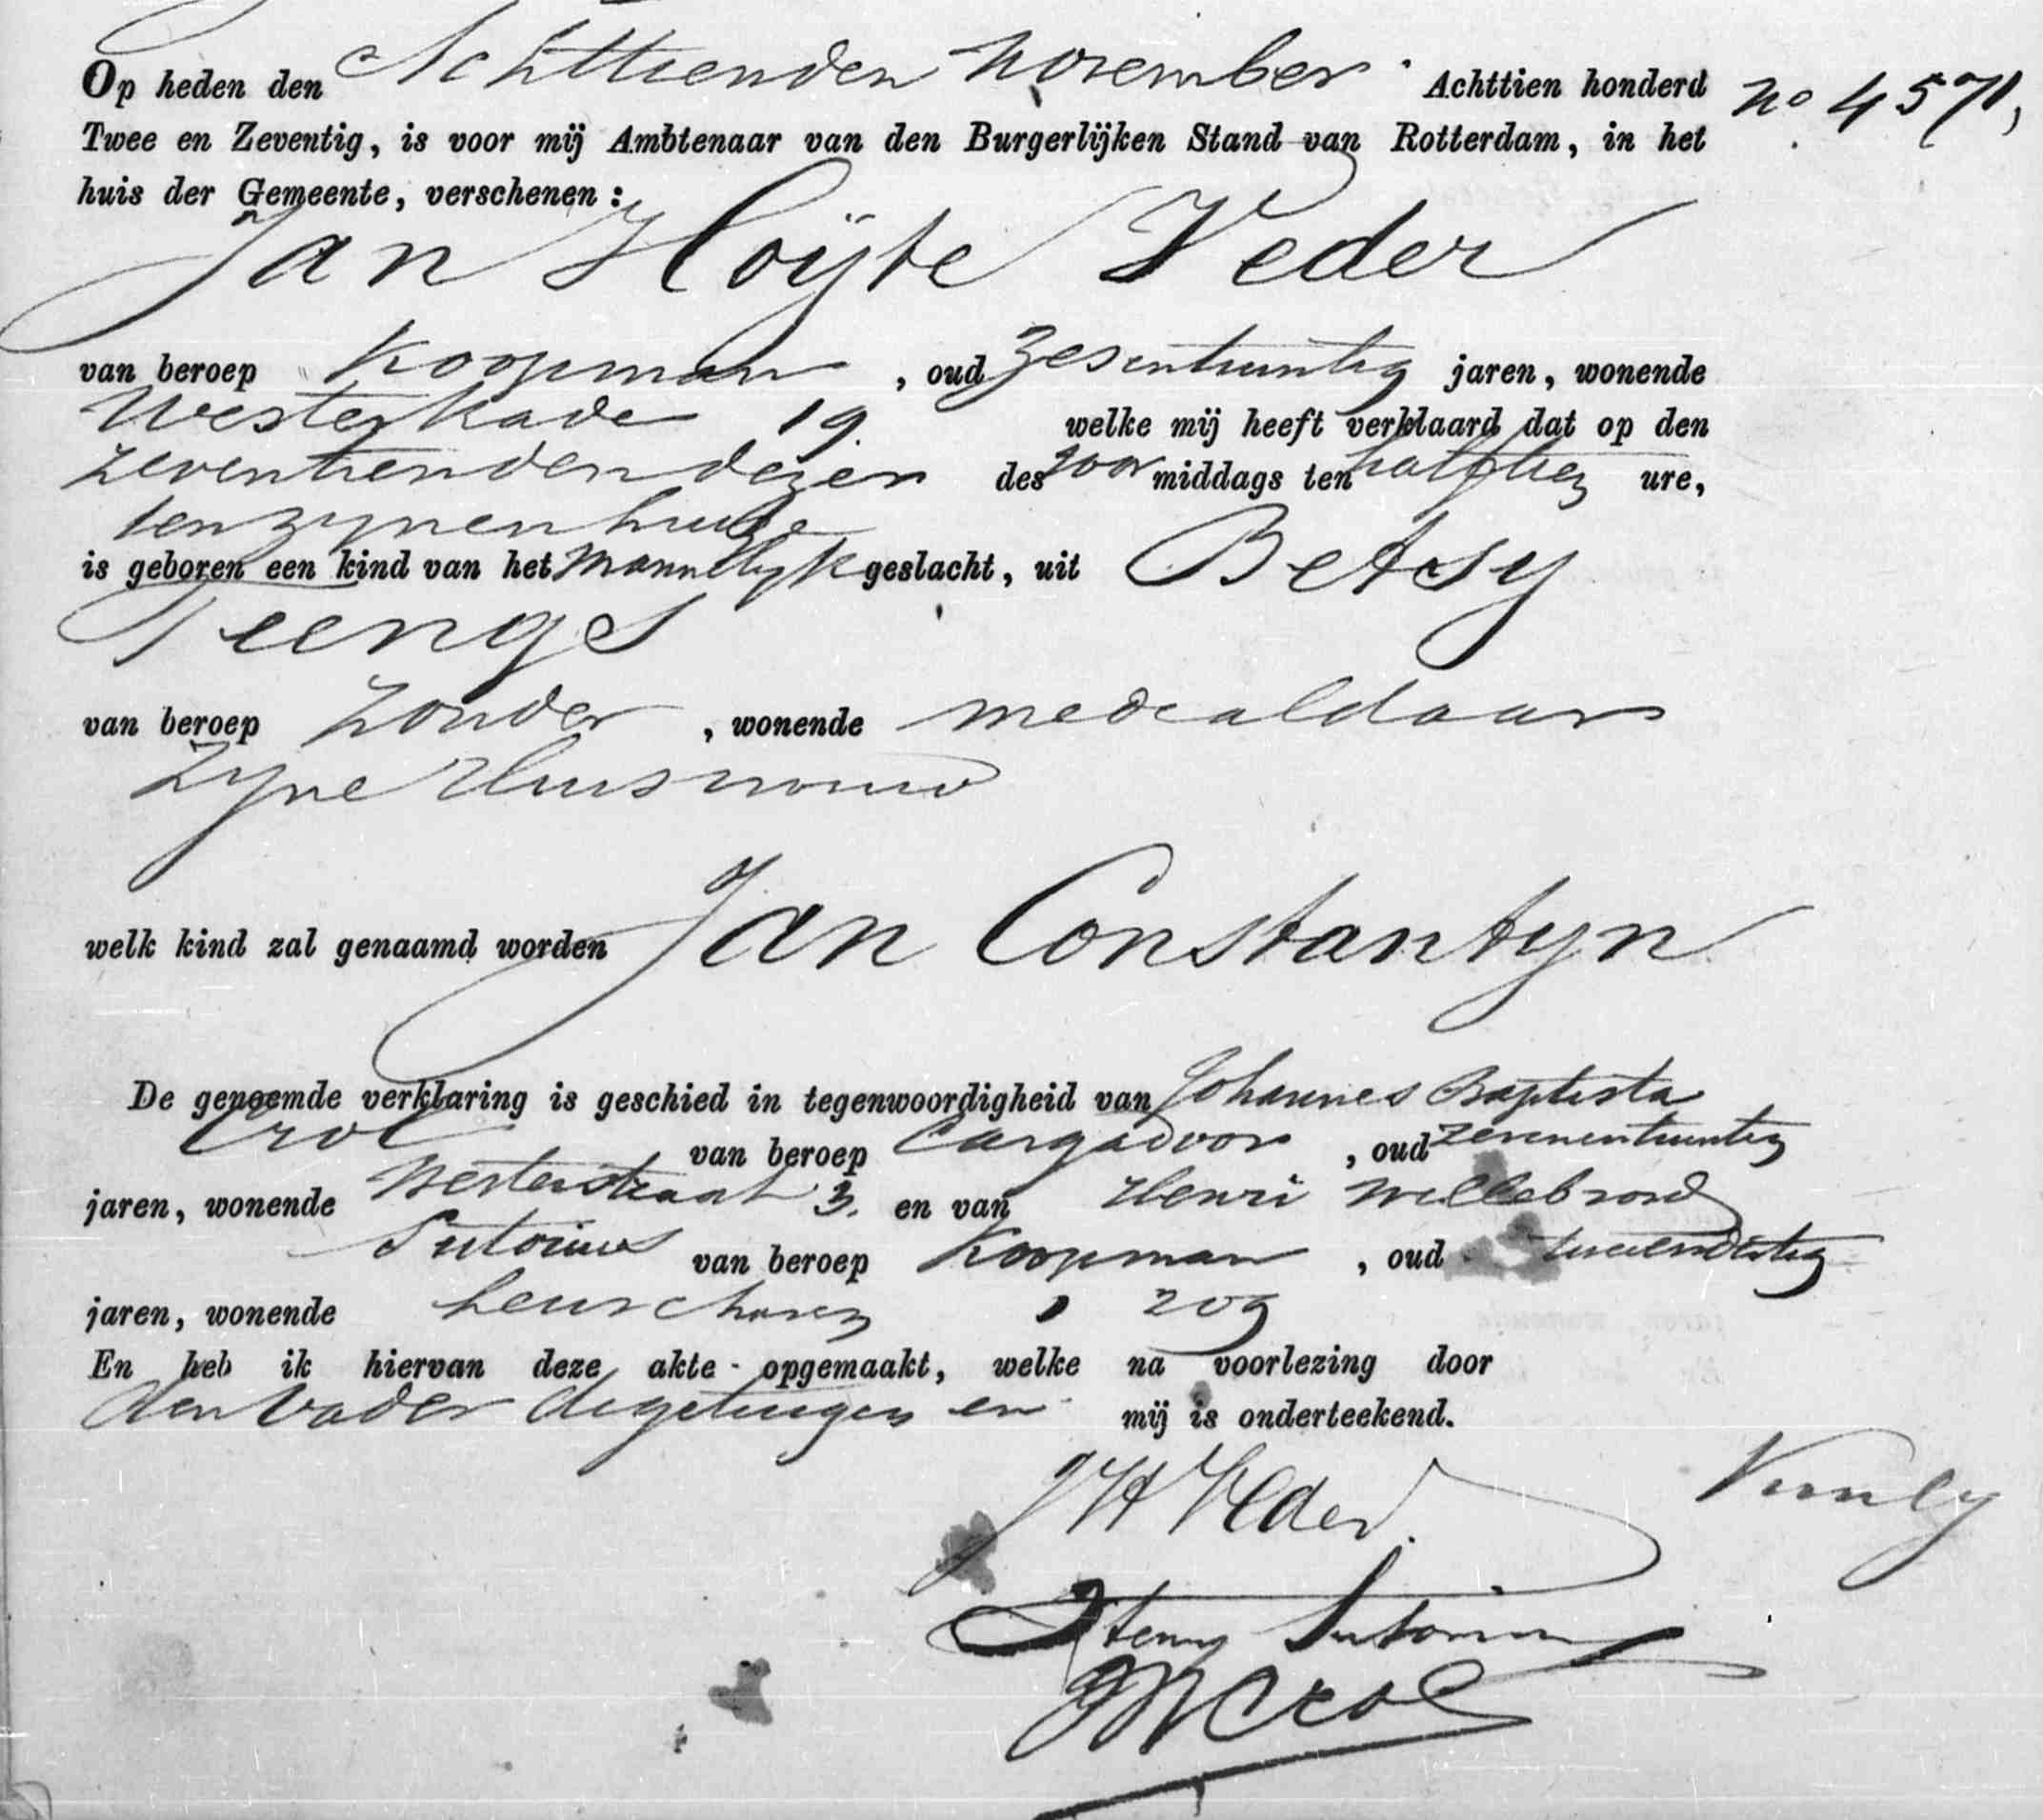 Op heden den Achttienden November Achttien honderd No 4571,
Twee en Zeventig, is voor mij Ambtenaar van den Burgerlijken Stand van Rotterdam, in het
huis der Gemeente, verschenen:
Jan Hoijte Veder
van beroep Koopman, oud zesentwintig jaren, wonende
Westerkade 19. welke mij heeft verklaard dat op den
zeventienden dezer des voor middags ten half tien ure,
ten zynen huize
is geboren een kind van het Mannelyk geslacht, uit Betsy
Teenge
van beroep zonder, wonende mede aldaar
zyne Huisvrouw
welk kind zal genaamd worden Jan Constantyn
De genoemde verklaring is geschied in tegenwoordigheid van Johannes Baptista
Crol van beroep Cargadoor, oud zevenentwintig
jaren, wonende Westerstraat 3. en van Henri Willebrord
Sutorius van beroep Koopman, oud tweeendertig
jaren, wonende Leuvehaven 209
En heb ik hiervan deze akte opgemaakt, welke na voorlezing door
den vader de getuigen en mij is onderteekend.
JH Veder.
Henry Sutorius
JB Crol